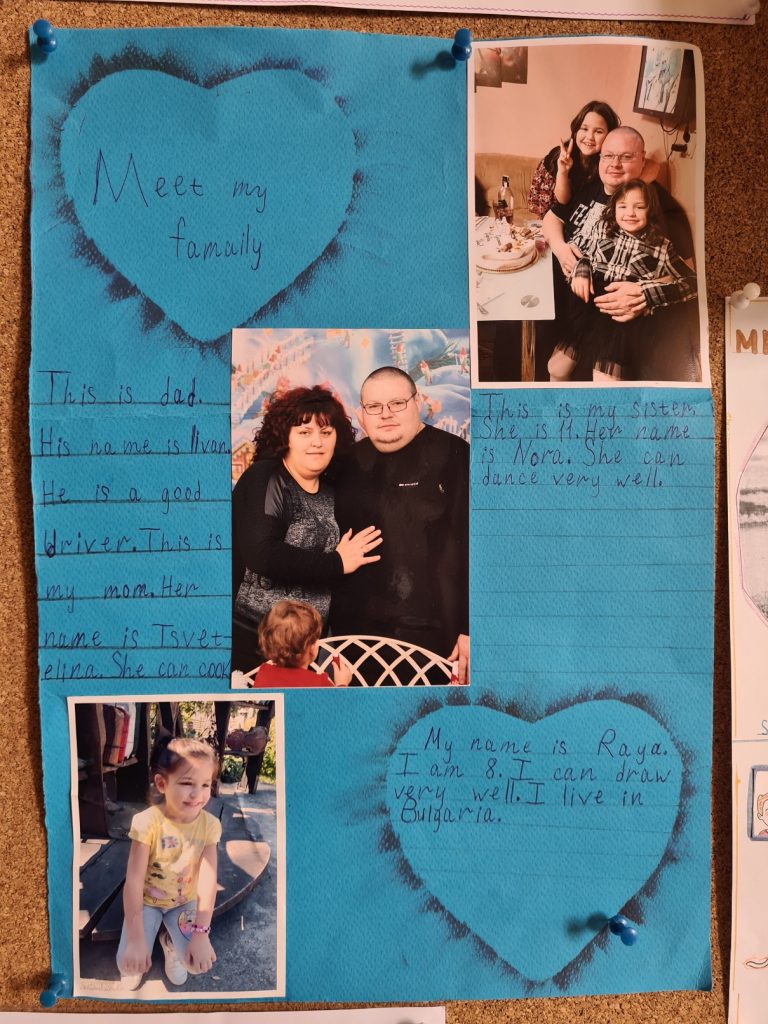 Meet my
famaily
This is dad.
His name is Ilvan.
He is a good
driver. This is
my mom. Her
name is Tsvet-
elina. She can cook
This is my sister
She is 11. Her name
is Nora. She can
dance very well.
My name is Raya.
I am 8. I can draw
very well. I live in
Bulgaria.